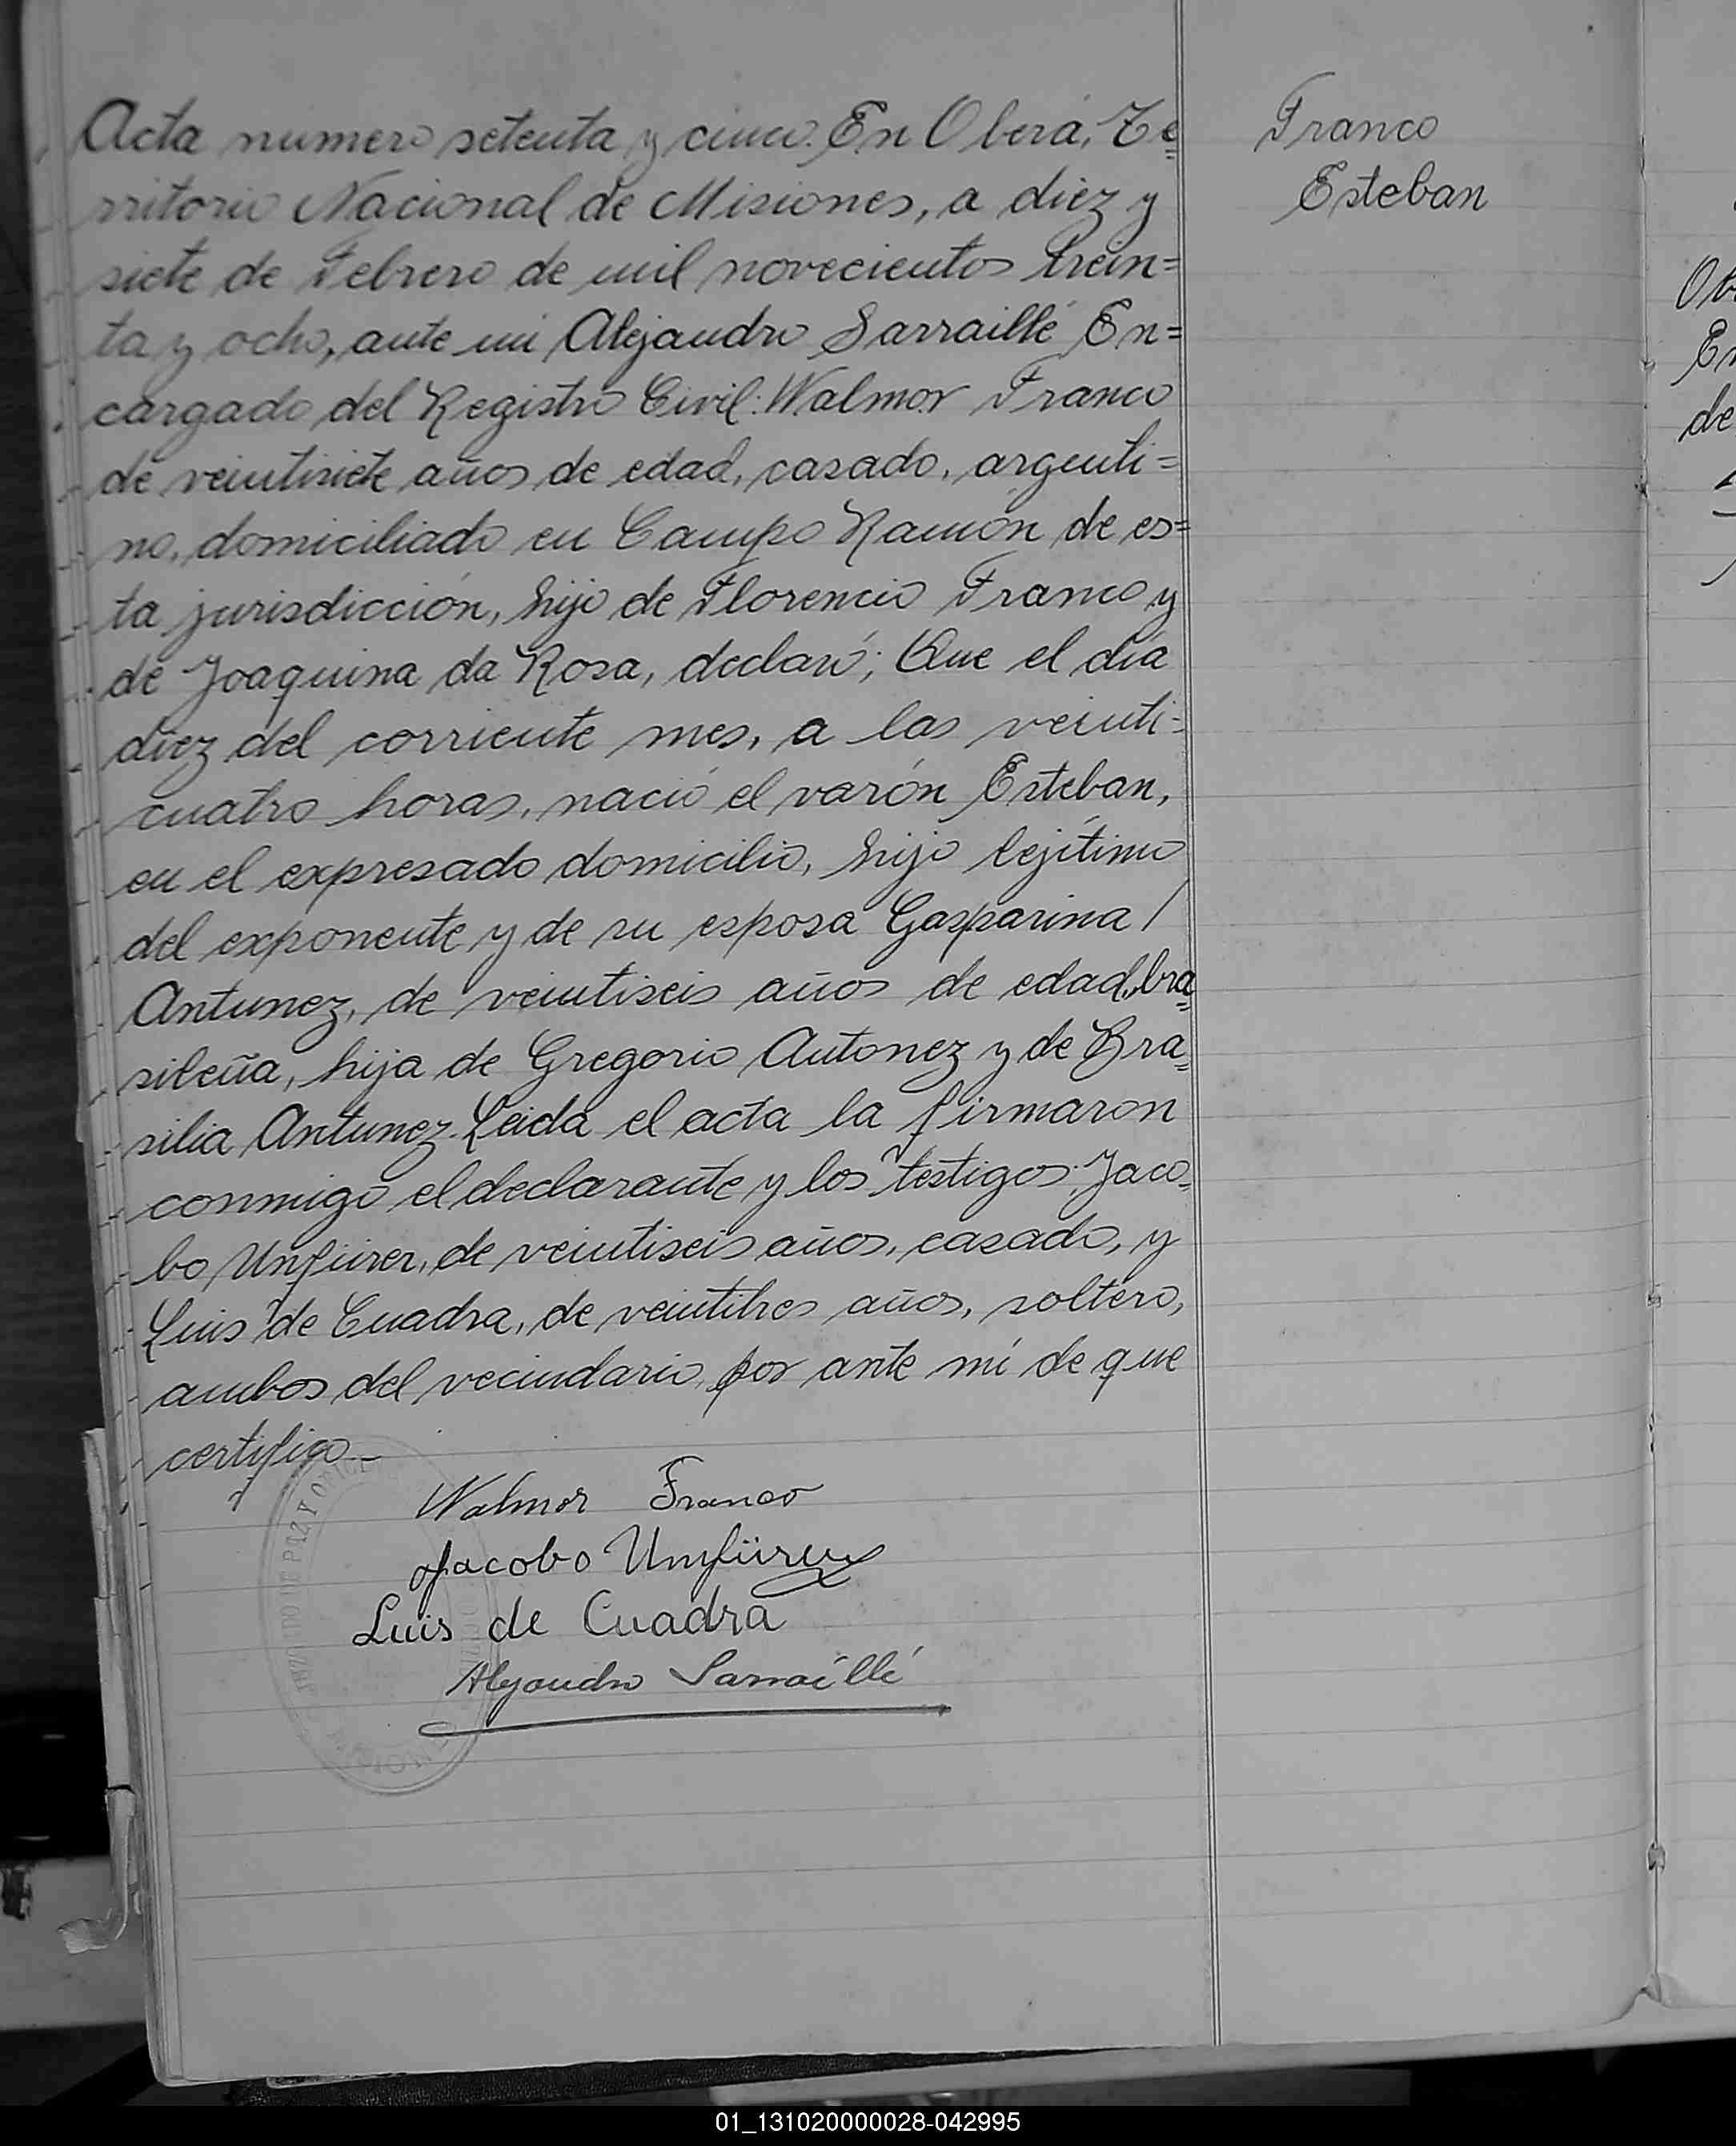 Acta numero setenta y cinco. En Oberá, Te=
rritorio Nacional de Misiones, a diez y
siete de Febrero de mil novecientos trein=
ta y ocho, ante mi Alejandro Sarraillé En=
cargado del Registro Civil: Walmor Franco
de veintisiete años de edad, casado, argenti=
no, domiciliado en Campo Ramón de es=
ta jurisdicción, hijo de Florencio Franco y
de Joaquina da Rosa, declaró; Que el día
diez del corriente mes, a las veinti=
cuatro horas, nació el varón Esteban,
en el expresado domicilio, hijo lejítimo
del exponente y de su esposa Gasparina /
Antunez, de veintiseis años de edad, bra=
sileña, hija de Gregorio Antonez y de Bra=
silia Antunez. Leida el acta la firmaron
conmigo el declarante y los testigos: Jaco=
bo Unfürer, de veintiseis años, casado, y
Luis de Cuadra, de veintitres años, soltero,
ambos del vecindario, por ante mí de que
certifico_
Walmor Franco
Jacobo Umfürer
Luis de Cuadra
Alejandro Sarraillé
Franco
Esteban
Ob
En
de
DE PAZ Y OFICI
01_131020000028-042995